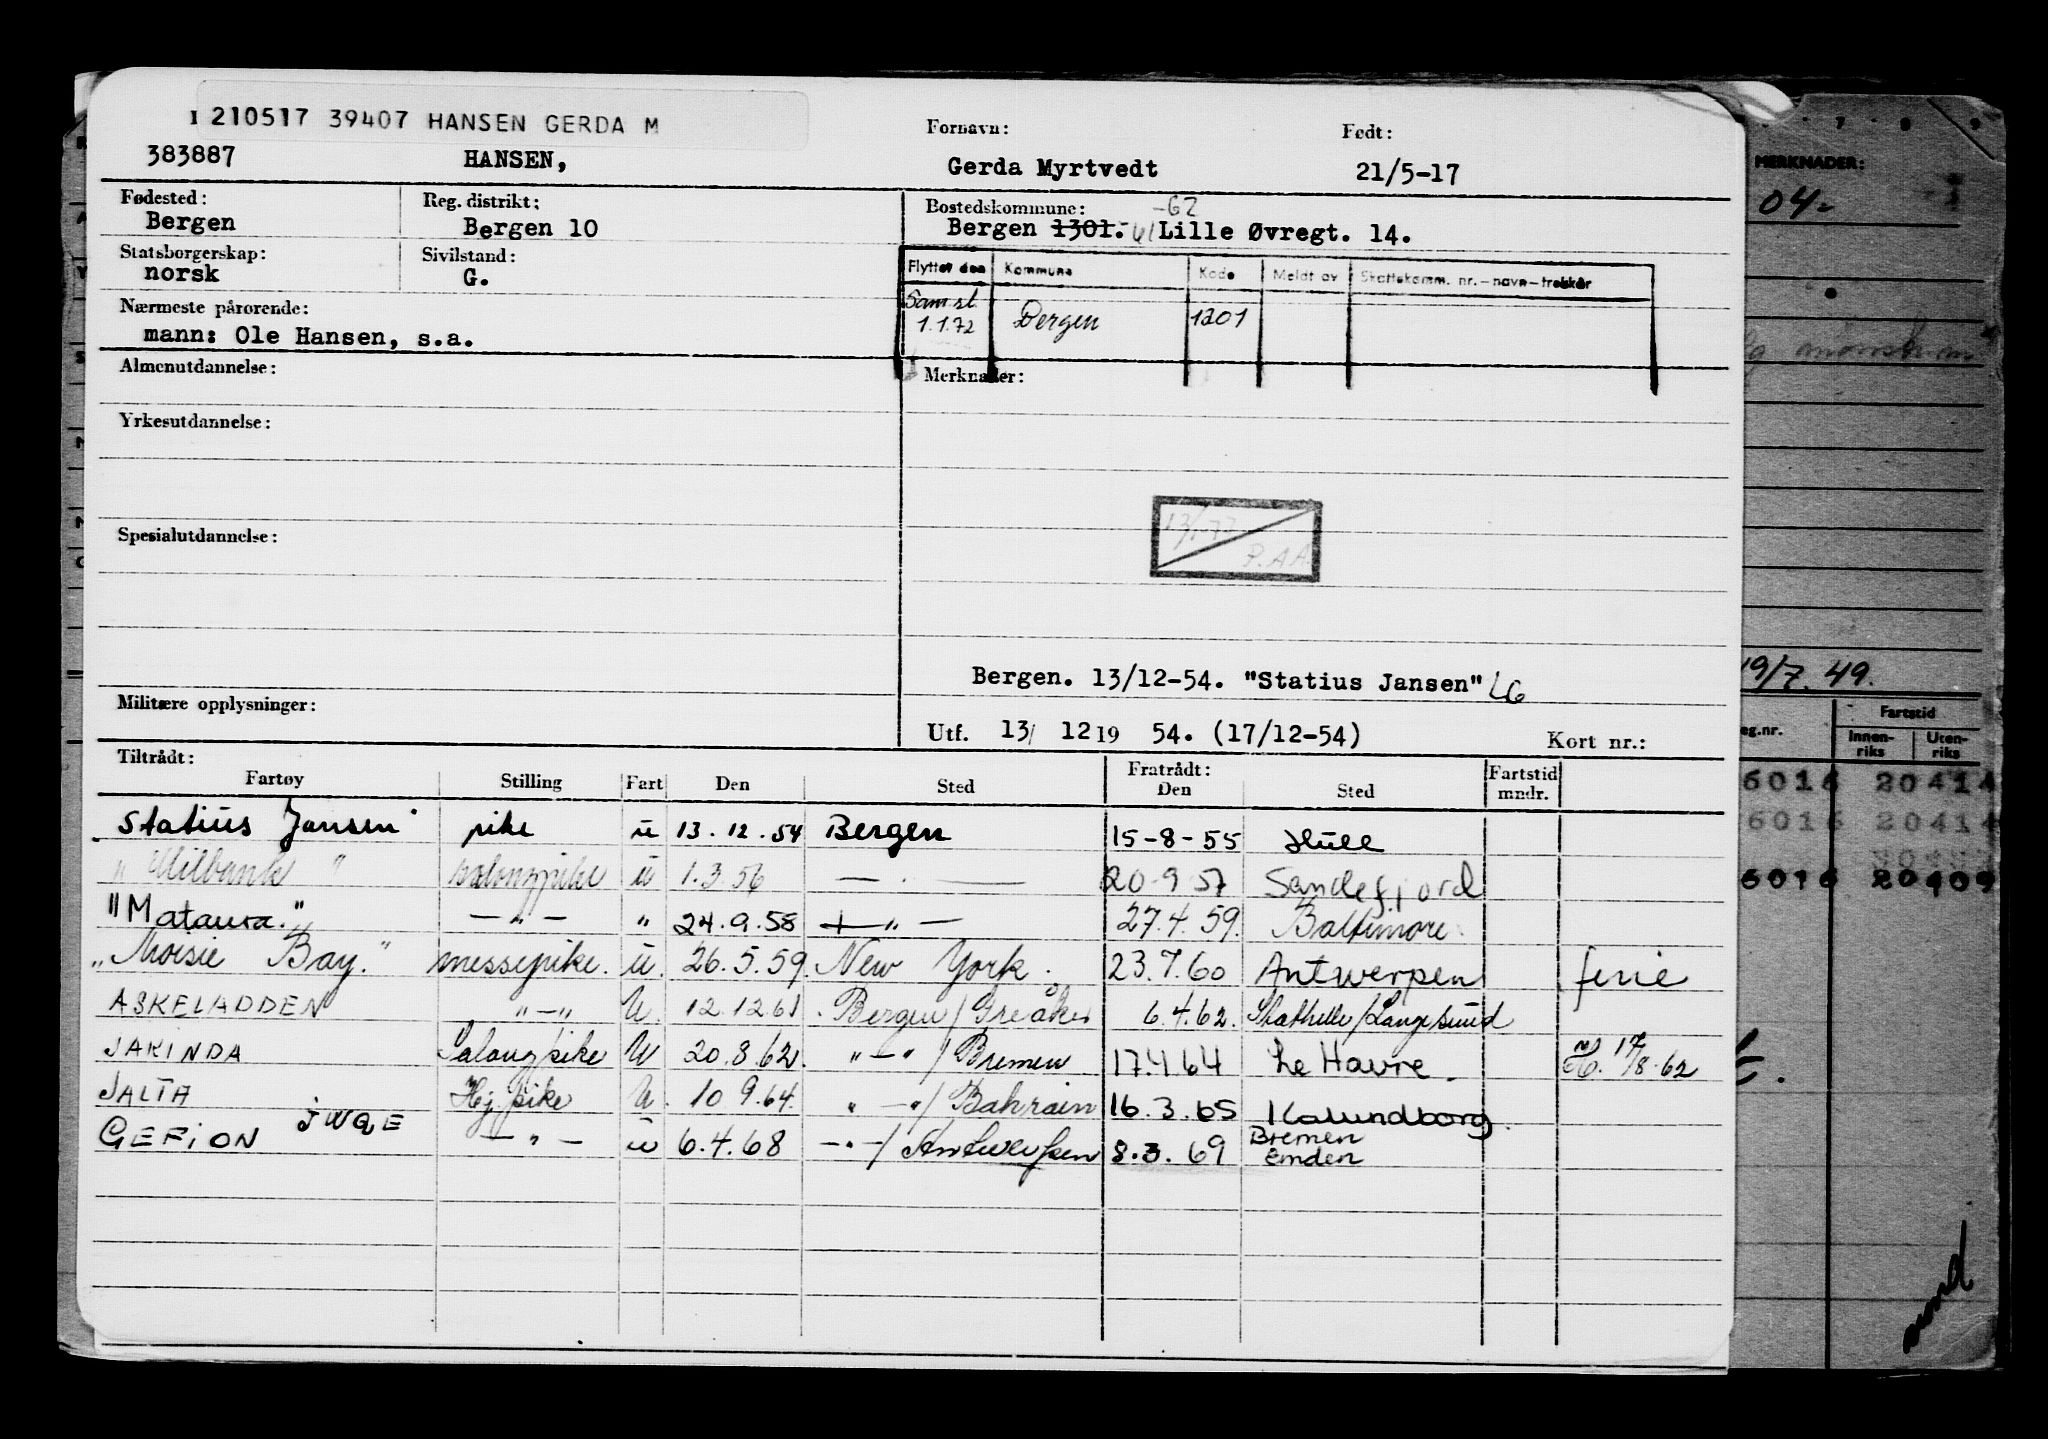 I 210517 39407 HANSEN GERDA M
383887 HANSEN, Fornavn: Gerda Myrtvedt Født: 21/5-17
Fødested: Bergen Reg. distrikt: Bergen 10 Bostedskommune: Bergen 1301. 61 -62 Lille Øvregt. 14.
Statsborgerskap: norsk Sivilstand: G.
Flyttet den Kommune Kode Meldt av Skattekomm. nr.-navn-trekkår
Samst. 1.1.72 Bergen 1201
Nærmeste pårørende: mann: Ole Hansen, s.a.
Almenutdannelse: Merknader:
Yrkesutdannelse:
P.AA
Spesialutdannelse:
Bergen. 13/12-54. "Statius Jansen" LG
Militære opplysninger:
Utf. 13/ 12 19 54. (17/12-54) Kort nr.:
Tiltrådt: Fratrådt:
Fartøy Stilling Fart Den Sted Den Sted Fartstid mndr.
Statius Jansen pike u 13.12.54 Bergen 15-8-55 Hull
"Milbank" salongpike u 1.3.56 — . — 20-9 57 Sandefjord
"Mataura." — " — " 24.9.58 — " — 27.4.59. Baltimore
"Moisie Bay." messepike. u. 26.5.59. New York. 23.7.60 Antwerpen ferie
ASKELADDEN "—" U. 12.12.61. Bergen/Greåker 6.4.62. Stathelle/Langesund
JARINDA Salongpike U 20.8.62. "—"/Bremen 17.4.64 Le Havre. 17/8-62
JALTA Hj.pike U. 10 9.64. "—"/Bahrain 16.3.65 Kalundborg.
GEFION JWQE — " — u 6.4.68 — " —/Antwerpen 8.3.69 Bremen Emden
7 8 9
MERKNADER:
04-
19/7.49.
eg.nr. Fartstid
Innenriks Utenriks
6016 20414
6016 20414
6016 20409